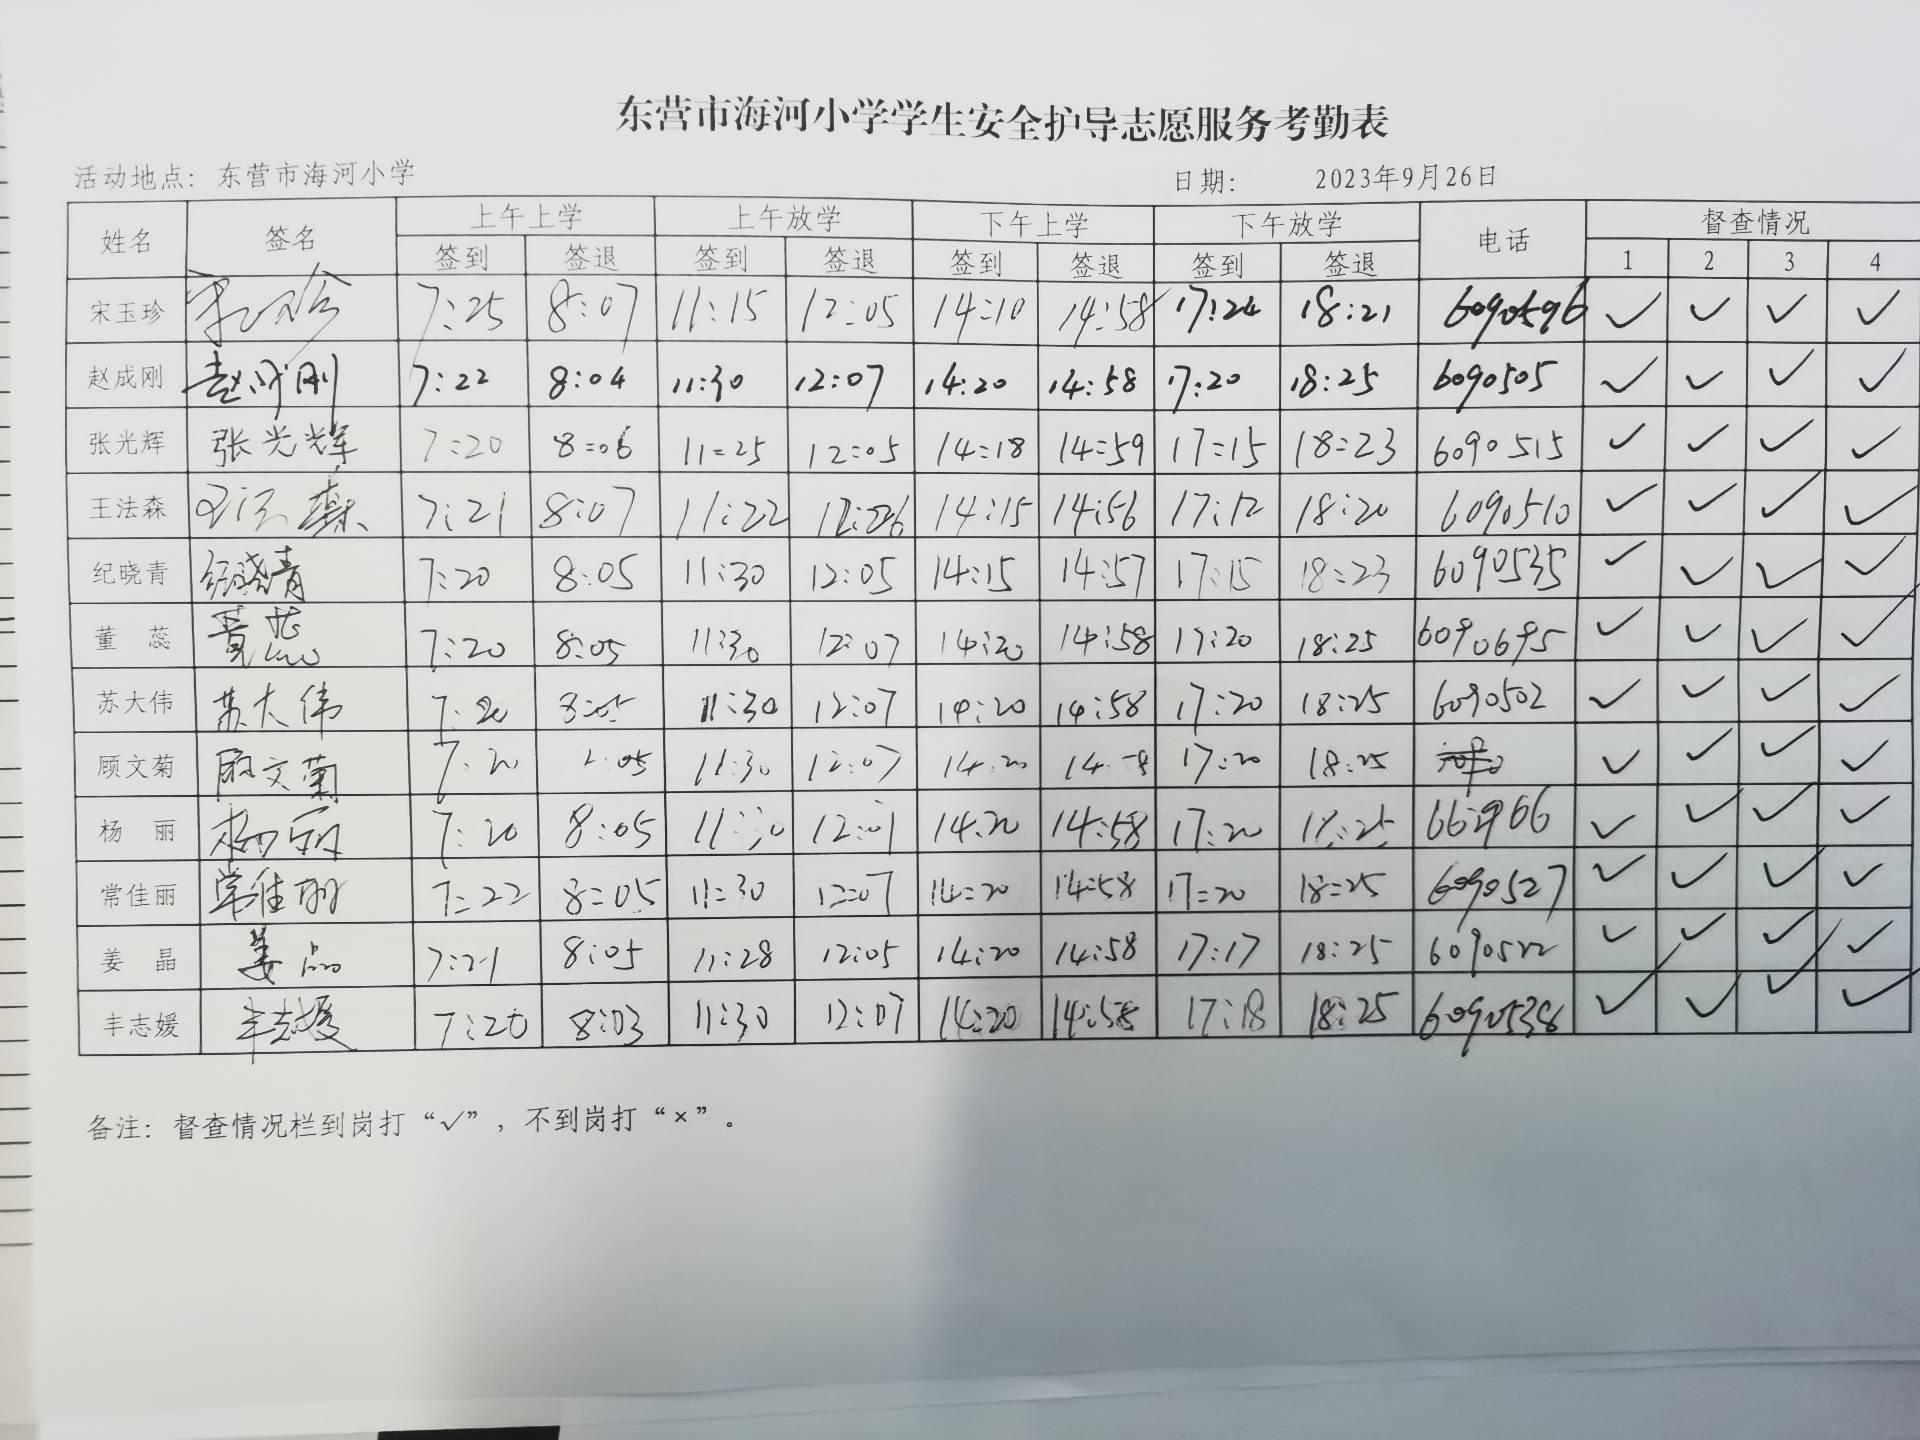 东营市海河小学学生安全护导志愿服务考勤表
活动地点：东营市海河小学 日期： 2023年9月26日
姓名 签名 上午上学 上午放学 下午上学 下午放学 电话 督查情况
签到 签退 签到 签退 签到 签退 签到 签退 1 2 3 4
宋玉珍 7:25 8:07 11:15 12:05 14:10 14:58 17:24 18:21 6090596 ✓ ✓ ✓ ✓
赵成刚 赵成刚 7:22 8:04 11:30 12:07 14:20 14:58 17:20 18:25 6090505 ✓ ✓ ✓ ✓
张光辉 张光辉 7:20 8:06 11:25 12:05 14:18 14:59 17:15 18:23 6090515 ✓ ✓ ✓ ✓
王法森 王法森 7:21 8:07 11:22 14:15 14:56 17:12 18:20 6090510 ✓ ✓ ✓ ✓
纪晓青 纪晓青 7:20 8:05 11:30 12:05 14:15 14:57 17:15 18:23 6090535 ✓ ✓ ✓ ✓
董 蕊 董蕊 7:20 8:05 11:30 12:07 14:20 14:58 17:20 18:25 6090695 ✓ ✓ ✓ ✓
苏大伟 苏大伟 7:20 8:05 11:30 12:07 14:20 14:58 17:20 18:25 6090502 ✓ ✓ ✓ ✓
顾文菊 顾文菊 7:20 11:30 12:07 14:20 17:20 18:25 ✓ ✓ ✓ ✓
杨 丽 杨丽 7:20 8:05 11:30 12:07 14:20 14:58 17:20 18:25 ✓ ✓ ✓ ✓
常佳丽 常佳丽 7:22 8:05 11:30 12:07 14:20 14:58 17:20 18:25 6090527 ✓ ✓ ✓ ✓
姜 晶 姜晶 7:21 8:05 11:28 12:05 14:20 14:58 17:17 18:25 6090522 ✓ ✓ ✓ ✓
丰志媛 丰志媛 7:20 8:03 11:30 12:07 14:20 14:58 17:18 18:25 6090538 ✓ ✓ ✓ ✓
备注：督查情况栏到岗打“√”，不到岗打“×”。